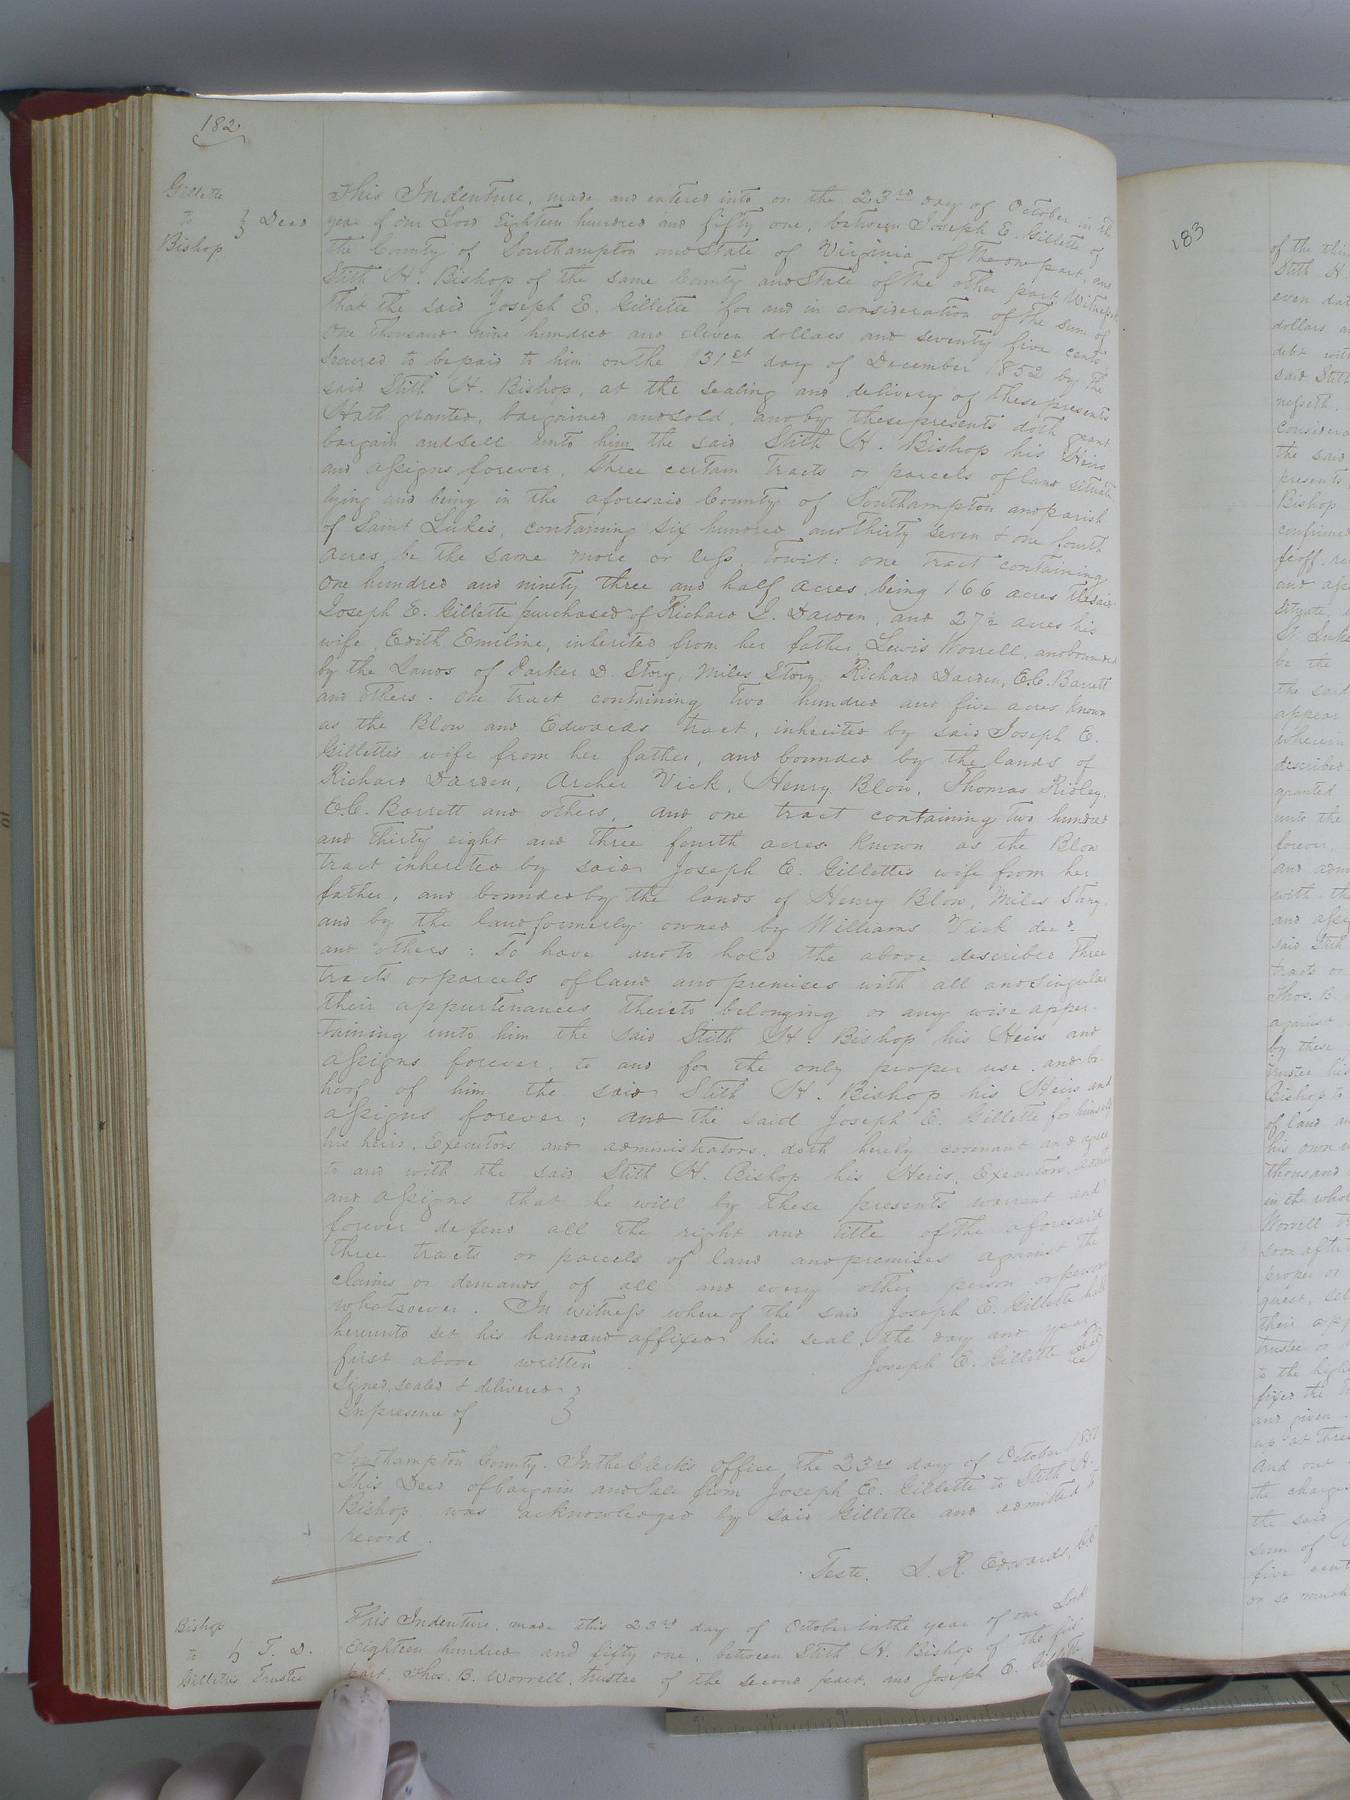 182
Gillette
to } Deed
Bishop
This Indenture, made and entered into on the 23rd day of October in the
year of our Lord Eighteen hundred and fifty one, between Joseph E. Gillette of
the County of Southampton and State of Virginia of the one part, and
Stith H. Bishop of the same County and State of the other part, Witnesseth
that the said Joseph E. Gillette for and in consideration of the sum of
one thousand nine hundred and eleven dollars and seventy five cents
secured to be paid to him on the 31st day of December 1852 by the
said Stith H. Bishop, at the sealing and delivery of these presents
Hath granted, bargained and sold, and by these presents doth grant
bargain and sell unto him the said Stith H. Bishop his Heirs
and assigns forever, three certain tracts or parcels of land situate
lying and being in the aforesaid County of Southampton and parish
of Saint Luke's, containing six hundred and thirty seven & one fourth
acres, be the same more or less, towit: one tract containing
one hundred and ninety three and half acres, being 166 acres the said
Joseph E. Gillette purchased of Richard J. Darden, and 27½ acres his
wife, Edith Emiline, inherited from her father, Lewis Worrell, and bounded
by the lands of Parker D. Story, Miles Story, Richard Darden, E.C. Barrett
and others. One tract containing two hundred and five acres known
as the Blow and Edwards tract, inherited by said Joseph E.
Gillette's wife from her father, and bounded by the lands of
Richard Darden, Archer Vick, Henry Blow, Thomas Ridley,
E.C. Barrett and others, and one tract containing two hundred
and thirty eight and three fourth acres known as the Blow
tract inherited by said Joseph E. Gillette's wife from her
father, and bounded by the lands of Henry Blow, Miles Story,
and by the land formerly owned by Williams Vick decd.
and others: To have and to hold the above described three
tracts or parcels of land and premises with all and singular
their appurtenances thereto belonging or any wise apper-
taining unto him the said Stith H. Bishop his Heirs and
assigns forever, to and for the only proper use and be-
hoof of him the said Stith H. Bishop his Heirs and
assigns forever; and the said Joseph E. Gillette for himself
his heirs, Executors and administrators, doth hereby covenant and agree
to and with the said Stith H. Bishop his Heirs, Executors, admrs
and assigns that he will by these presents warrant and
forever defend all the right and title of the aforesaid
three tracts or parcels of land and premises against the
claims or demands of all and every other person or persons
whatsoever. In witness where of the said Joseph E. Gillette hath
hereunto set his hand and affixed his seal, the day and year
first above written.
Joseph E. Gillette
Signed, sealed & delivered }
in presence of
Southampton County. In the Clerk's office the 23rd day of October 1851
This Deed of bargain and sale from Joseph E. Gillette to Stith H.
Bishop was acknowledged by said Gillette and admitted to
record.
Teste. L. R. Edwards, C.C.
Bishop
to } T. D.
Gillette's Trustee
This Indenture, made this 23rd day of October in the year of our Lord
Eighteen hundred and fifty one, between Stith H. Bishop of the first
part, Thos. B. Worrell, trustee of the second part, and Joseph E. Gillette
183
of the thi
Stith H.
even dat
dollars a
debt wit
said Stith
considera
the said
presents
Bishop
confirmed
feoff, re
and ass
situate,
St Luke
be the
the said
appear
wherein
described
granted
unto the
forever,
and
with the
and assig
said Stith
tracts or
Thos. B
against
by these
trustee his
Bishop to
of land an
his own
thousand
in the whol
Worrell
soon after
proper or
quest, sel
their app
trustee or
to the high
fixed the
and given
up at three
and out
the charges
the said
sum of
five cent
or so much